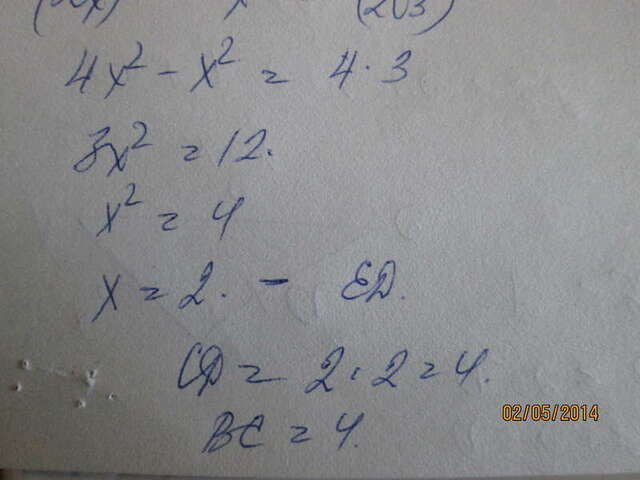 4x² - x² = 4 · 3
3x² = 12.
x² = 4
x = 2. - ED.
CD = 2 · 2 = 4.
BC = 4.
02/05/2014